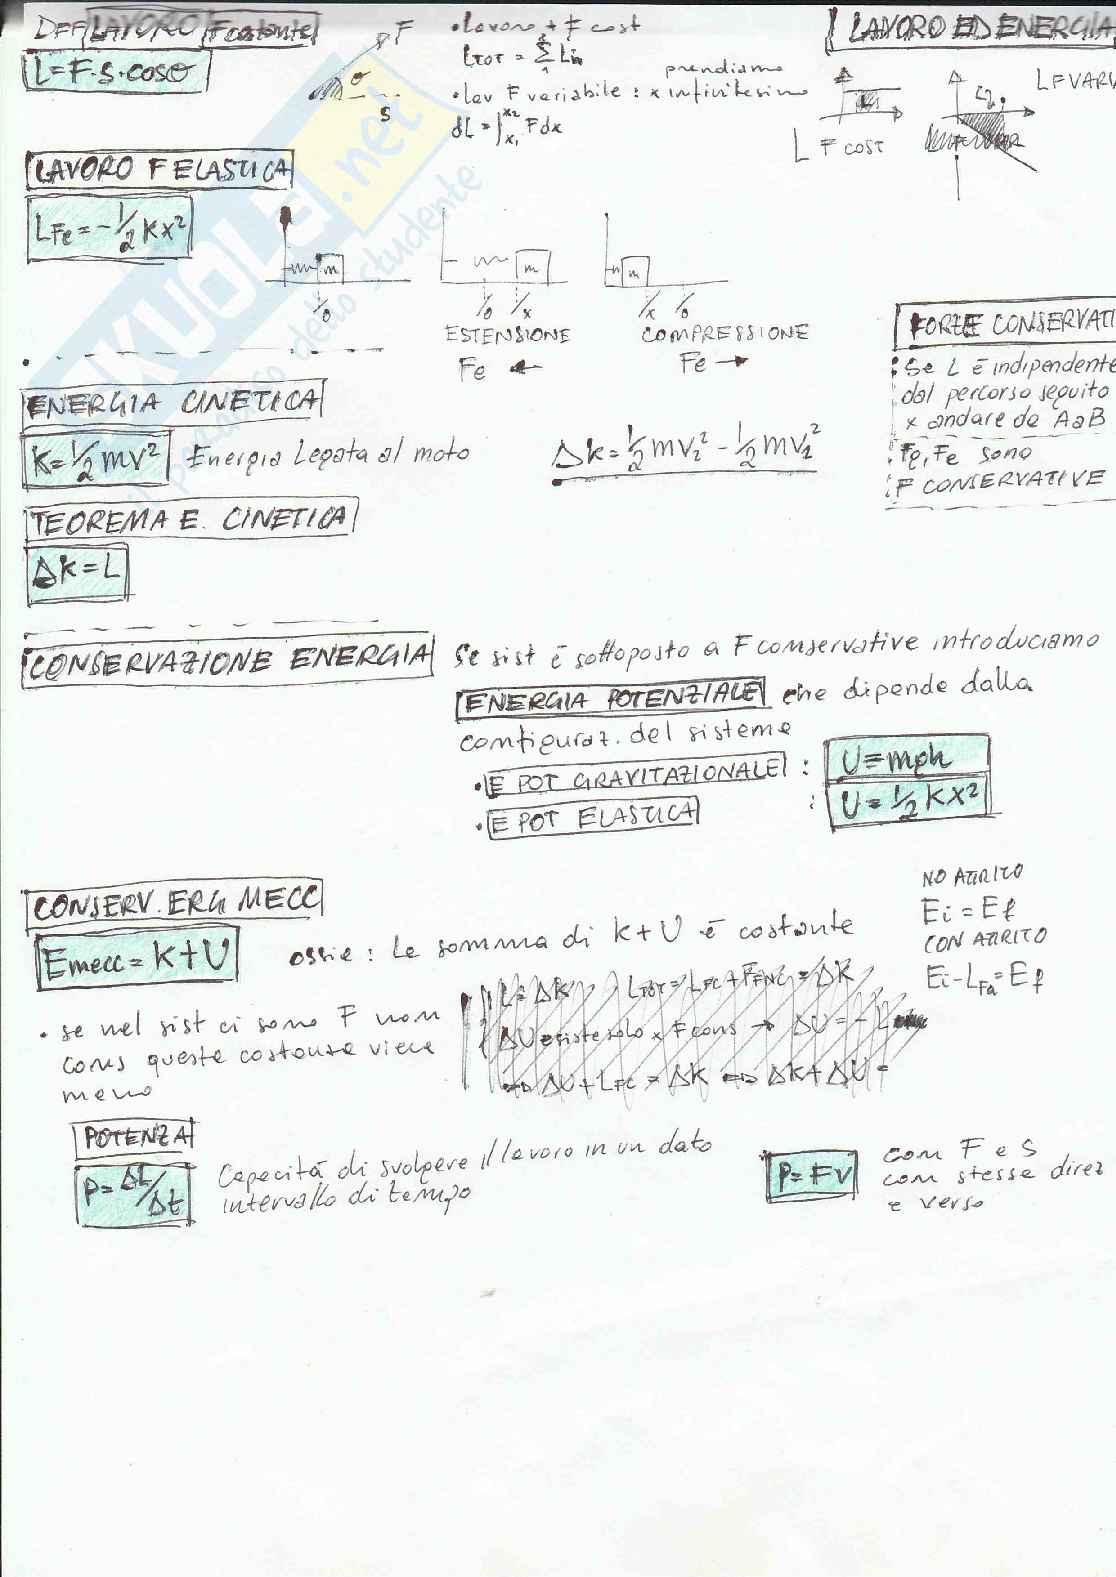 LAVORO ED ENERGIA
DEF LAVORO F costante
L=F·S·cosθ
F
θ
S
•Lavoro + F cost
LTOT = Σ Li
•lav F variabile : x infinitesimo
prendiamo
dL = ∫x1x2 F dx
L F COST
L F VAR
LAVORO F ELASTICA
LFe = -1/2 Kx²
m
0
m
0 x
ESTENSIONE
Fe ←
m
x 0
COMPRESSIONE
Fe →
FORZE CONSERVATI
• Se L è indipendente
dal percorso seguito
x andare da A a B
• Fg, Fe sono
F CONSERVATIVE
ENERGIA CINETICA
K=1/2 mv² Energia legata al moto
Δk=1/2 mv2² - 1/2 mv1²
TEOREMA E. CINETICA
Δk=L
CONSERVAZIONE ENERGIA Se sist è sottoposto a F conservative introduciamo
ENERGIA POTENZIALE che dipende dalla
configuraz. del sistema
• E POT GRAVITAZIONALE : U=mgh
• E POT ELASTICA : U=1/2 KX²
CONSERV. ERG MECC
Emecc = K+U ossia : La somma di K+U è costante
NO ATTRITO
Ei = Ef
CON ATTRITO
Ei-LFa=Ef
• se nel sist ci sono F non
cons questa costanza viene
meno
L=ΔK LTOT = LFC + FFNC = ΔK
ΔU esiste solo x F cons → ΔU = -L
⇒ ΔU + LFC = ΔK ⇔ ΔK + ΔU =
POTENZA
P=ΔL/Δt
Capacità di svolgere il lavoro in un dato
intervallo di tempo
P=FV
con F e S
con stessa direz
e verso
SKUOLA.net
il paradiso dello studente